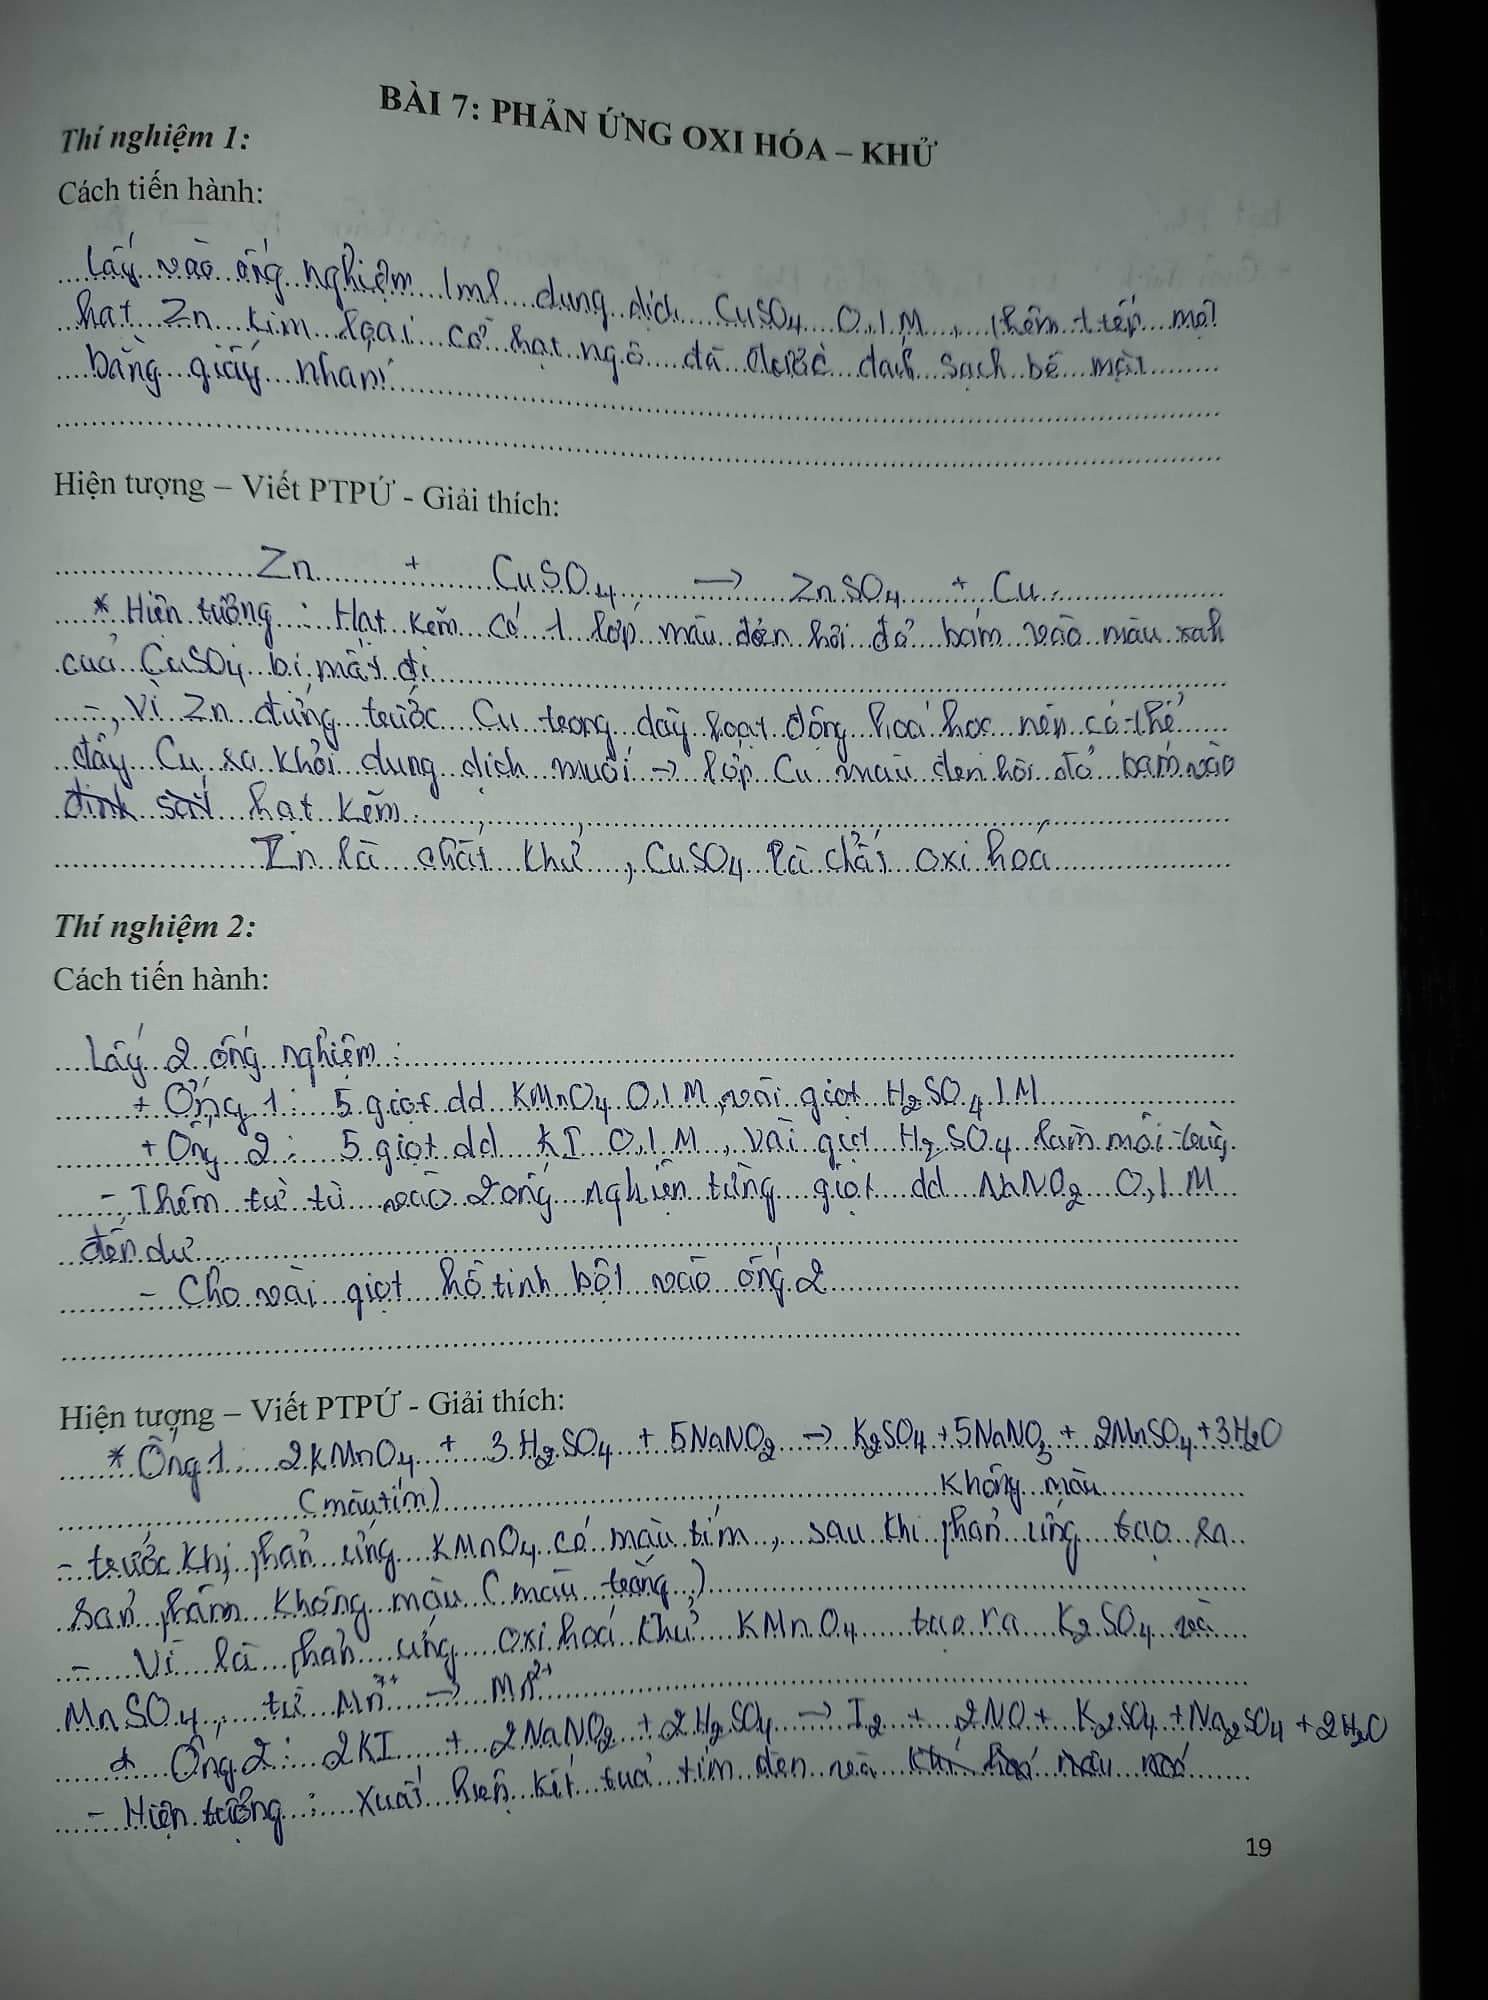 BÀI 7: PHẢN ỨNG OXI HÓA – KHỬ
Thí nghiệm 1:
Cách tiến hành:
Lấy vào ống nghiệm 1ml dung dịch CuSO4 0,1M, thêm tiếp một
hạt Zn kim loại cỡ hạt ngô đã được đánh sạch bề mặt
bằng giấy nhám
Hiện tượng – Viết PTPỨ - Giải thích:
Zn + CuSO4 → ZnSO4 + Cu
* Hiện tượng : Hạt kẽm có 1 lớp màu đen hơi đỏ bám vào màu xah
của CuSO4 bị mất đi
- Vì Zn đứng trước Cu trong dãy hoạt động hoá học nên có thể
đẩy Cu ra khỏi dung dịch muối → lớp Cu màu đen hơi đỏ bám vào
đinh sắt hạt kẽm
Zn là chất khử , CuSO4 là chất oxi hoá
Thí nghiệm 2:
Cách tiến hành:
Lấy 2 ống nghiệm :
+ Ống 1 : 5 giọt dd KMnO4 0,1M, vài giọt H2SO4 1M
+ Ống 2 : 5 giọt dd KI 0,1M, vài giọt H2SO4 làm môi
- Thêm từ từ vào 2 ống nghiện từng giọt dd NaNO2 0,1M
đến dư
- Cho vài giọt hồ tinh bột vào ống 2
Hiện tượng – Viết PTPỨ - Giải thích:
* Ống 1 : 2KMnO4 + 3H2SO4 + 5NaNO2 → K2SO4 + 5NaNO3 + 2MnSO4 + 3H2O
(màu tím) không màu
- trước khi phản ứng KMnO4 có màu tím , sau khi phản ứng tạo ra
sản phẩm không màu ( màu trắng )
- Vì là phản ứng oxi hoá khử KMnO4 tạo ra K2SO4 và
MnSO4 , từ Mn7+ → Mn2+
* Ống 2 : 2KI + 2NaNO2 + 2H2SO4 → I2 + 2NO + K2SO4 + Na2SO4 + 2H2O
- Hiện tượng : Xuất hiện kết tủa tím đen và
19